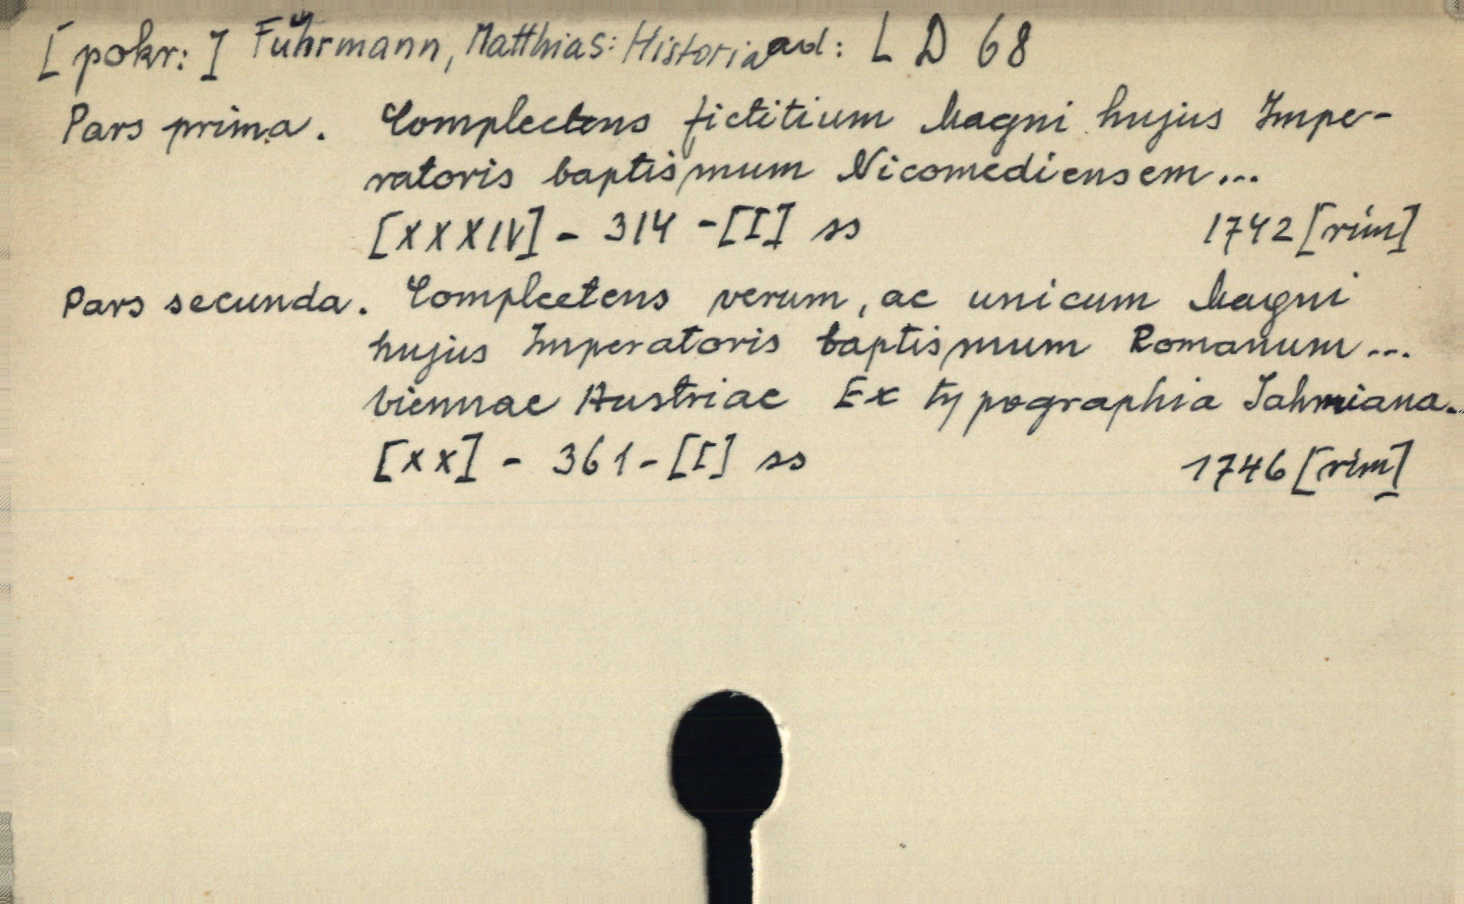 [pokr:] Fuhrmann, Matthias: Historia ad: L D 68
Pars prima. Complectens fictitium Magni hujus Impe-
ratoris baptismum Nicomediensem...
[XXXIV] - 314 - [I] ss 1742 [rím]
Pars secunda. Complectens verum, ac unicum Magni
hujus Imperatoris baptismum Romanum...
Viennae Austriae Ex typographia Jahniana..
[XX] - 361 - [I] ss 1746 [rím]